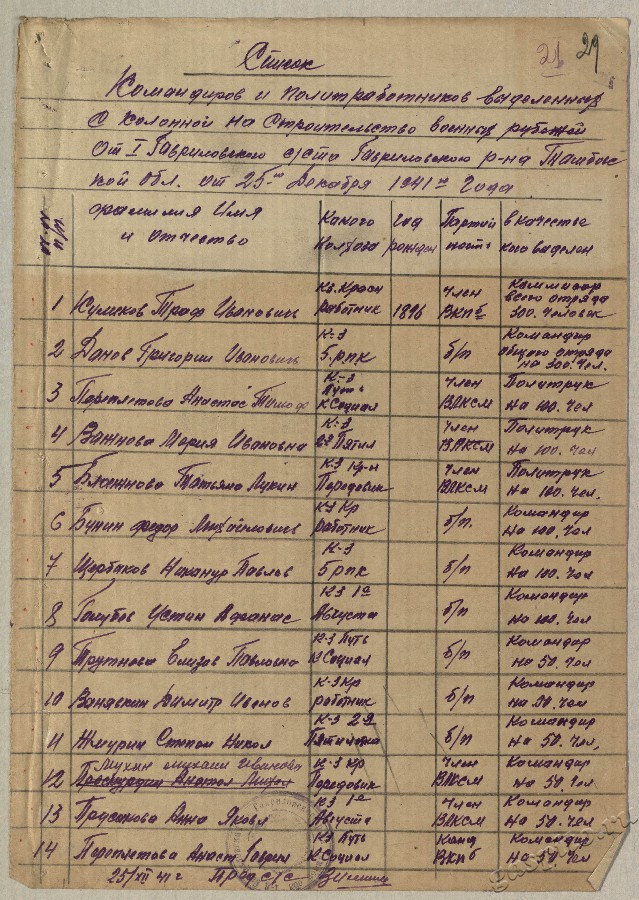 21 29
Список
Командиров и политработников выделенных
с колонной на строительство военных рубежей
от I Гавриловского с/сто Гавриловского р-на Тамбовс
кой обл. от 25-го Декабря 1941-го Года
№-№ п/п.
фамилия Имя и отчество
Какого Колхоза
Год рожден
Партий ность
в качестве кого выделен
1 Куликов Троф Иванович К-з. Красн работник 1896 член ВКПб Коммисар всего отряда 300. человек
2 Данов Григории Иванович К-з 5.рпк б/п Командир общего отряда на 300. чел.
3 Переплетова Анастас Тимоф К-з Путь К Социал член ВЛКСМ Политрук на 100. чел
4 Важнова Мария Ивановна К-з 2я Пятил член ВЛКСМ Политрук на 100. чел
5 Татьяна Лукин К-з Кр-н Передовик член ВЛКСМ Политрук на 100. чел.
6 Бунин федор Михайлович К-з Кр работник б/п. Командир на 100. чел
7 Щербаков Никанур Павлов К-з 5 рпк б/п Командир на 100. чел
8 Голубов Устин Афанас К-з 1е Августа б/п Командир на 100. чел
9 Трутнева Елизов Павловна К-з Путь К Социал б/п Командир на 50. чел
10 Димитр Иванов К-з Кр работник б/п Командир на 50. чел
11 Жмурин Степан Никол К-з 2я Пятилетка б/п Командир на 50. чел,
Мухин Михаил Иванович
12 Анатол К-з Кр Передовик член ВЛКСМ Командир на 50 чел
13 Прусакова Анна Яковл К-з 1е Августа член ВЛКСМ Командир на 50. чел
14 Переплетова Анаст Гаврил К-з Путь К Социал Канд ВКПб Командир на 50 чел
25/XII 41 г Пред с/с